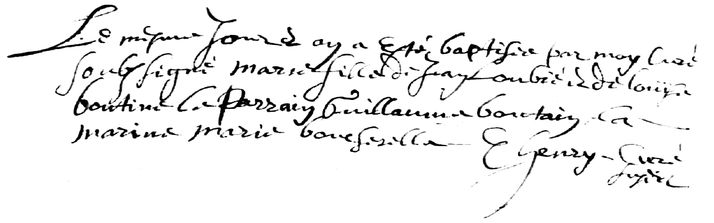 Le mesme jour et an a esté baptisée par moy curé
soubsigné marie fille de jean loubière et de louise
boutine le Parrain Guillaume boutain la
marine marie boucherelle E henry curé